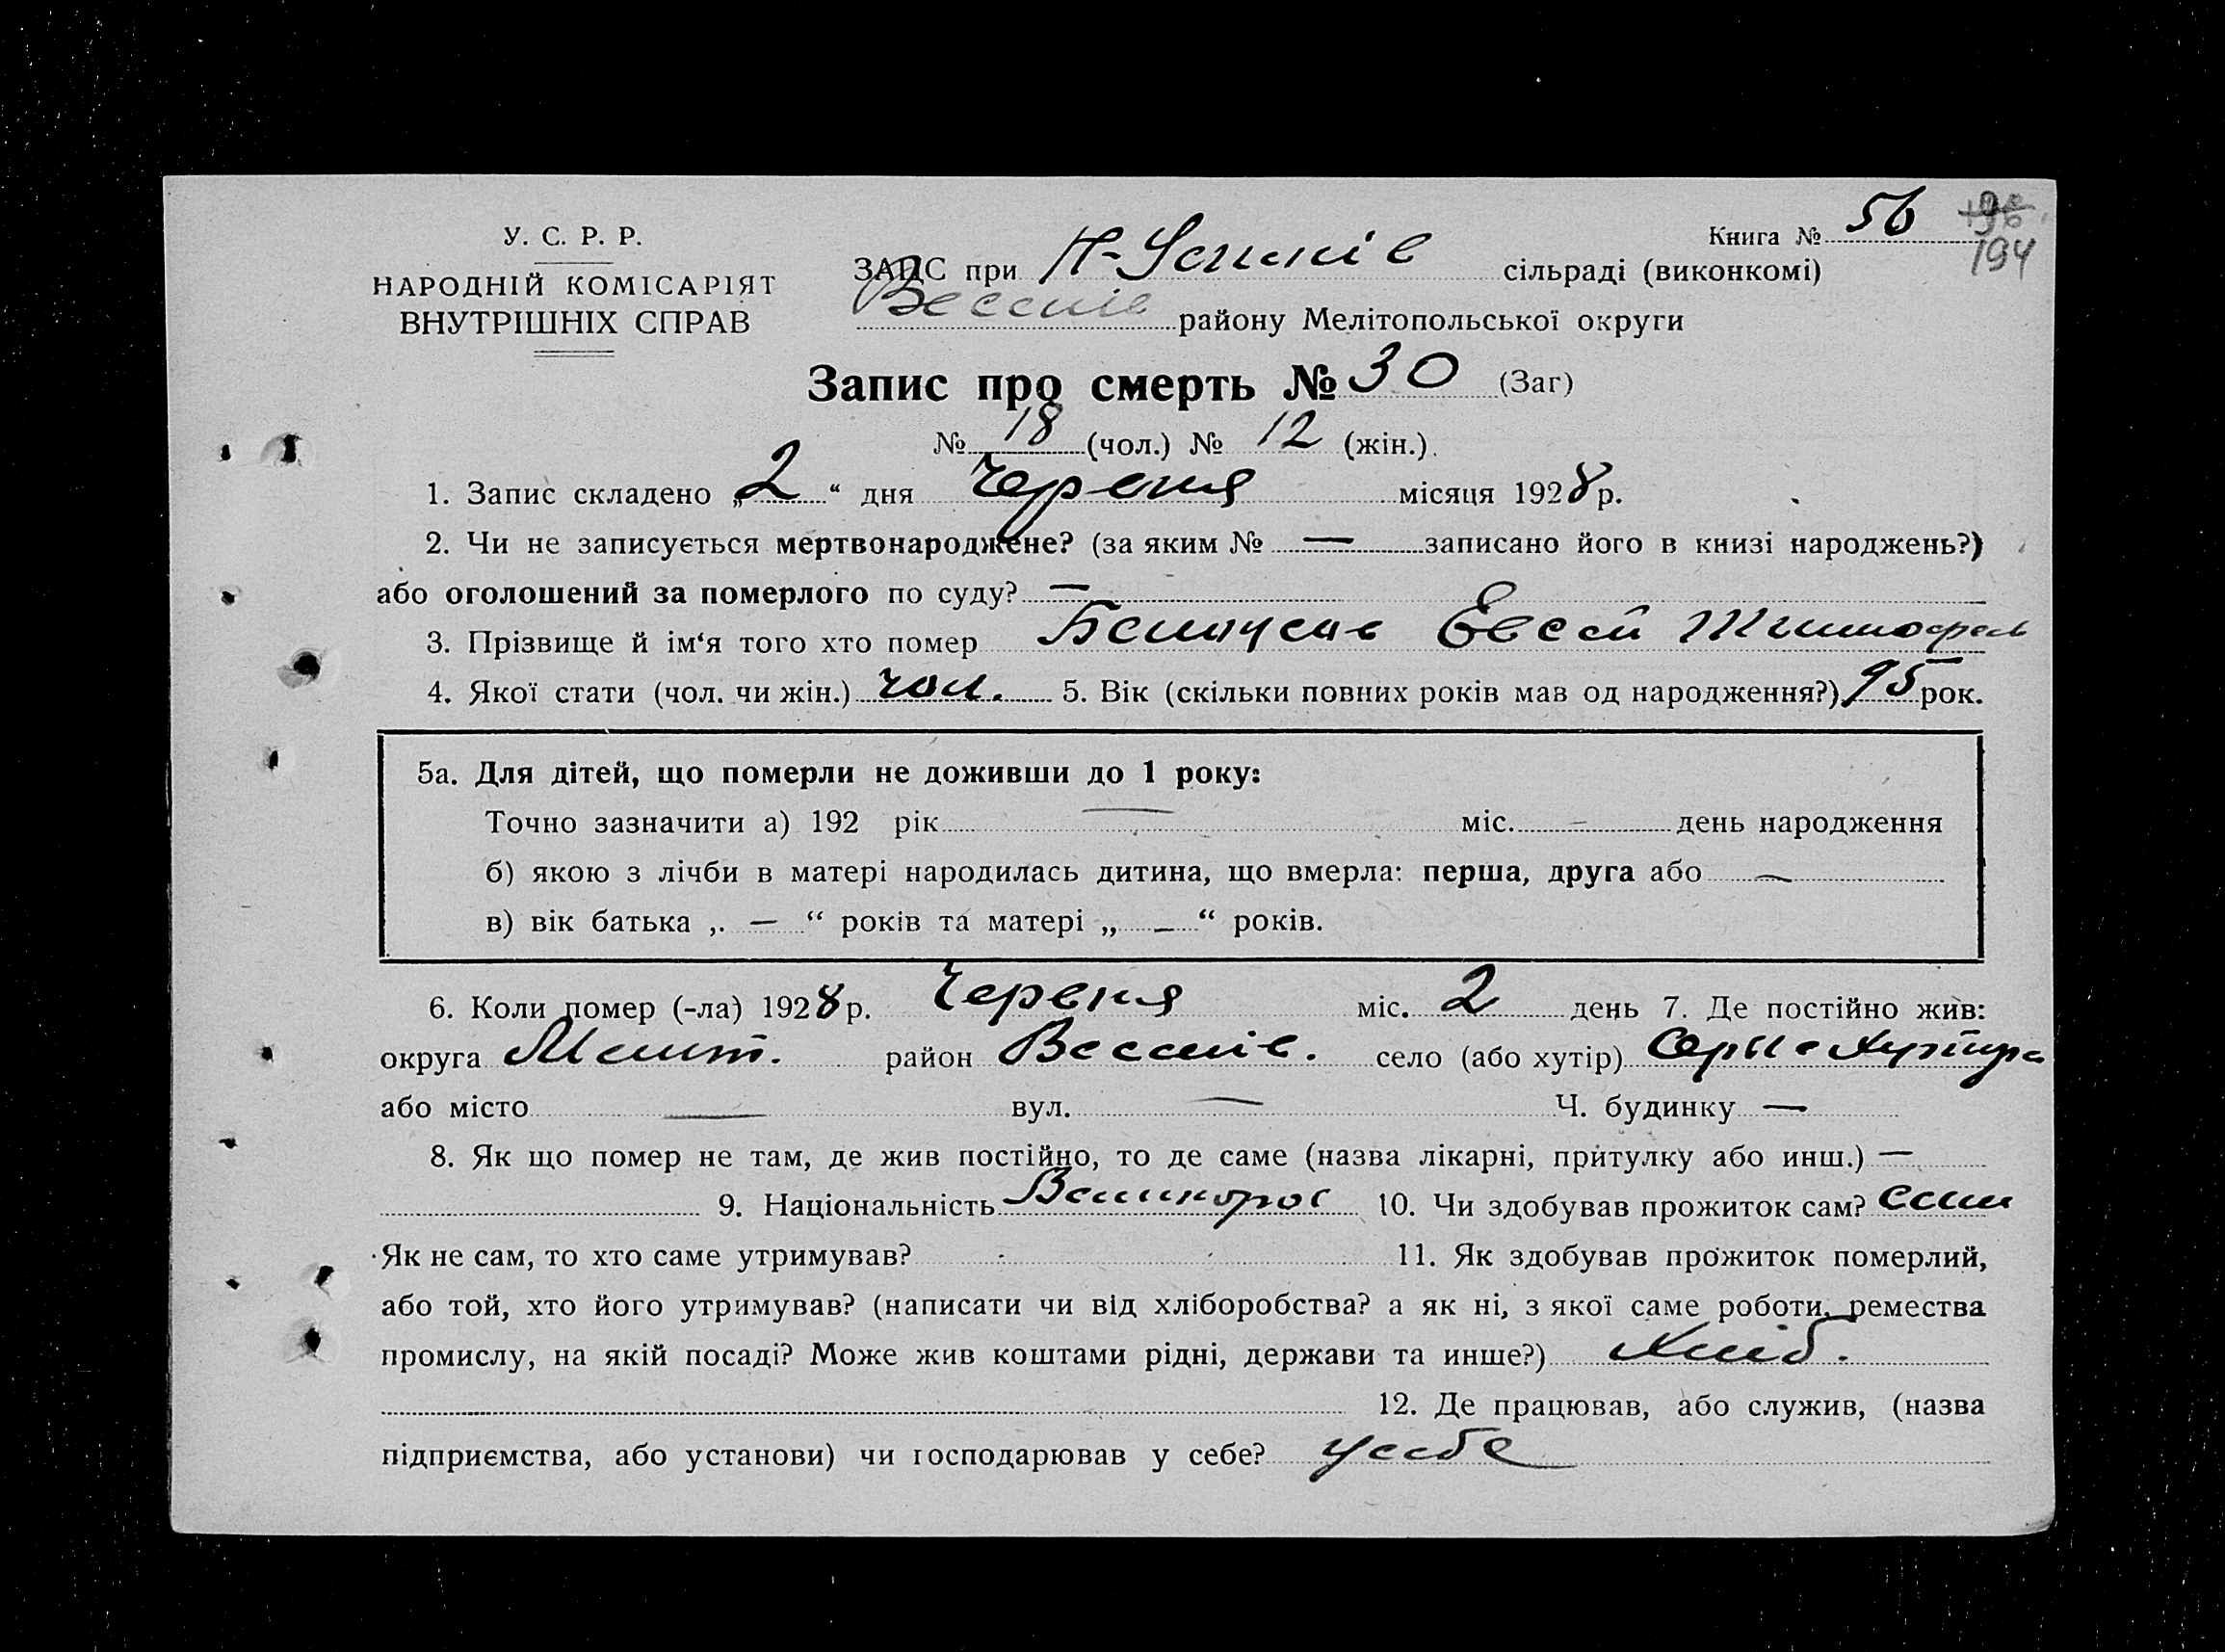 У. С. Р. Р.
НАРОДНІЙ КОМІСАРІЯТ
ВНУТРІШНІХ СПРАВ
Книга № 56
194
ЗАПС при Н-Успенів сільраді (виконкомі)
Веселів району Мелітопольської округи
Запис про смерть № 30 (Заг)
№ 18 (чол.) № 12 (жін.).
1. Запис складено „2“ дня Червня місяця 1928 р.
2. Чи не записується мертвонароджене? (за яким № — записано його в книзі народжень?)
або оголошений за померлого по суду? —
3. Прізвище й ім‘я того хто помер Евсей
4. Якої стати (чол. чи жін.) чол. 5. Вік (скільки повних років мав од народження?) 95 рок.
5а. Для дітей, що померли не доживши до 1 року:
Точно зазначити а) 192 рік — міс. — день народження
б) якою з лічби в матері народилась дитина, що вмерла: перша, друга або —
в) вік батька „ — “ років та матері „ — “ років.
6. Коли помер (-ла) 1928 р. Червня міс. 2 день 7. Де постійно жив:
округа Меліт. район Веселів. село (або хутір)
або місто — вул. — Ч. будинку —
8. Як що помер не там, де жив постійно, то де саме (назва лікарні, притулку або инш.) —
9. Національність Великорос 10. Чи здобував прожиток сам? сам
Як не сам, то хто саме утримував? 11. Як здобував прожиток померлий,
або той, хто його утримував? (написати чи від хліборобства? а як ні, з якої саме роботи, ремества
промислу, на якій посаді? Може жив коштами рідні, держави та инше?) Хліб.
12. Де працював, або служив, (назва
підприємства, або установи) чи господарював у себе? у себе